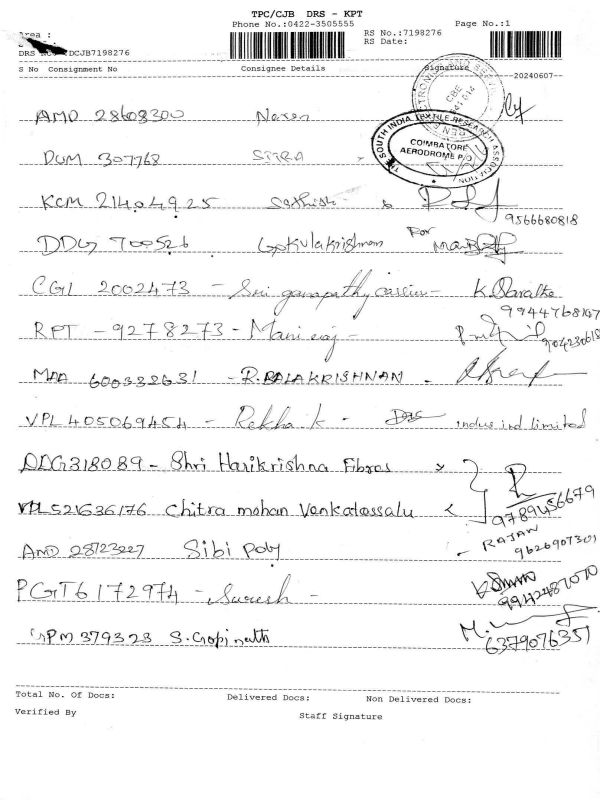 TPC/CJB DRS - KPT
Phone No.:0422-3505555 Page No.:1
Area :
RS No.:7198276
RS Date:
DRS DCJB7198276
S No Consignment No Consignee Details Signature
20240607
COIMBATORE
AERODROME P.O
THE SOUTH INDIA TEXTILE RESEARCH ASSOCIATION
AMD 28608300
DUM 307768 SITRA
KCM 21404925 Sathish
9566680818
DDG 700526 Gokulakrishnan For
CGL 2002473 - Sri ganapathy - K.
9944768147
RPT - 9278273 - Maniraj -
904230618
MAA 600332631 - R.BALAKRISHNAN -
VPL 405069454 - Rekha k - indus ind limited
DLG318089 - Shri Harikrishna Fibres
VPL521636176 Chitra mohan Venkatassalu
9789456679
AMD 28723227 Sibi Poly - RAJAN
9626907301
PGT6172974 - Suresh -
9942487070
379323 S.Gopinath
6379076351
Total No. Of Docs: Delivered Docs: Non Delivered Docs:
Verified By Staff Signature